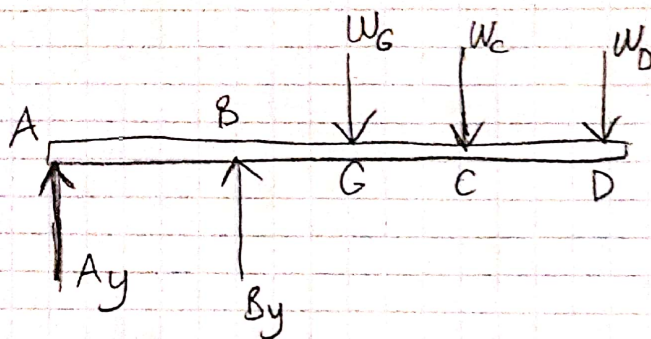 W_G W_C W_D
A B
G C D
Ay
By